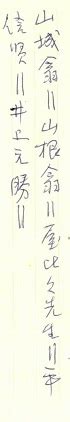 山城翁〃山根翁〃屋比久先生〃平
信賢〃井上元勝〃